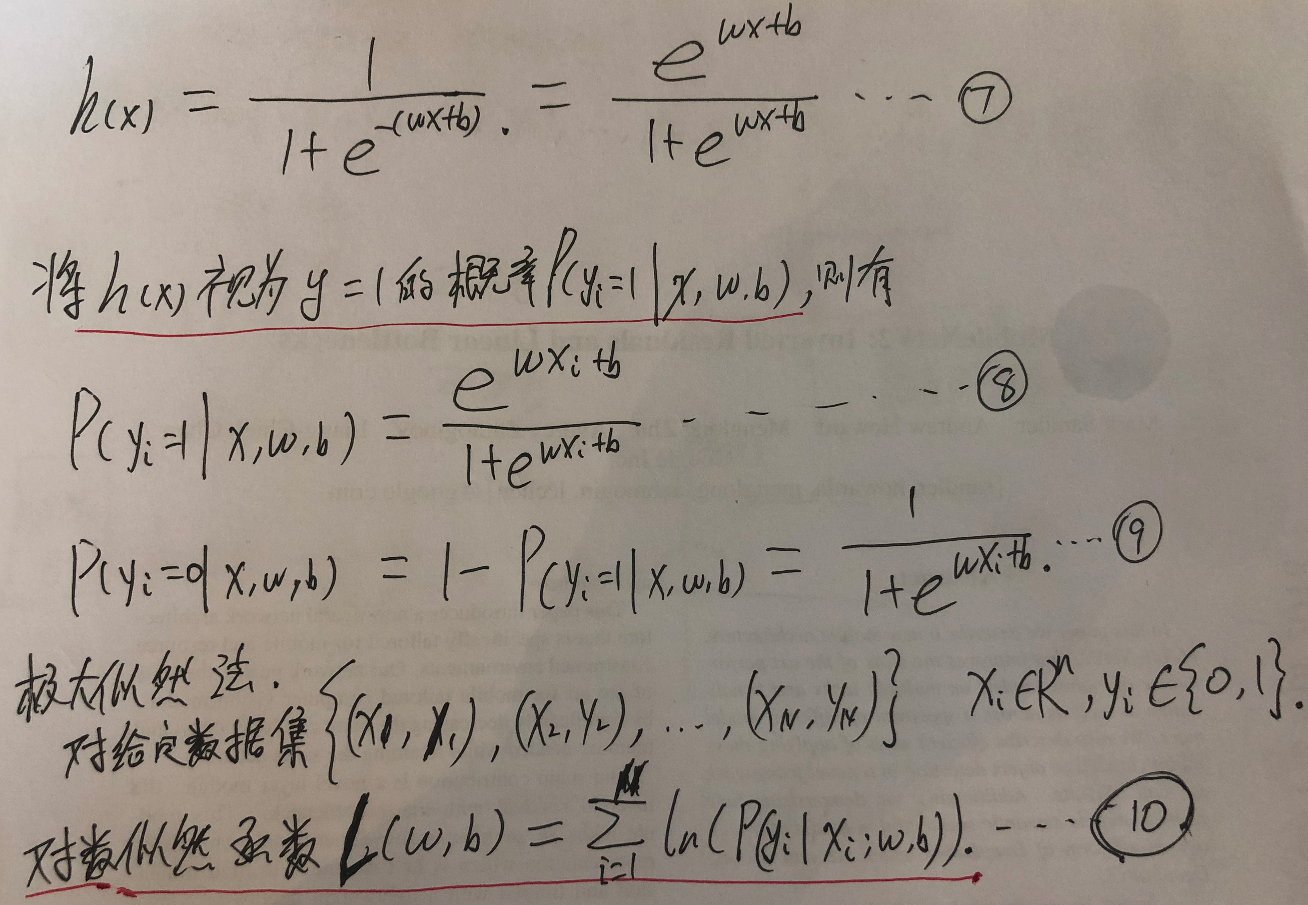 h(x) = 1/(1+e^{-(wx+b)}). = e^{wx+b}/(1+e^{wx+b}) ··· ⑦
将h(x)视为y=1的概率P(yᵢ=1|x,w.b),则有
P(yᵢ=1|x,w,b) = e^{wxᵢ+b}/(1+e^{wxᵢ+b}) ······ ⑧
P(yᵢ=0|x,w,b) = 1-P(yᵢ=1|x,w.b) = 1/(1+e^{wxᵢ+b}). ···· ⑨
极大似然法.
对给定数据集{(x₁,y₁),(x₂,y₂),...,(x_N,y_N)} xᵢ∈Rⁿ,yᵢ∈{0,1}.
对数似然函数L(w,b) = ∑_{i=1}^{N} ln(P(yᵢ|xᵢ;w.b)). --- ⑩